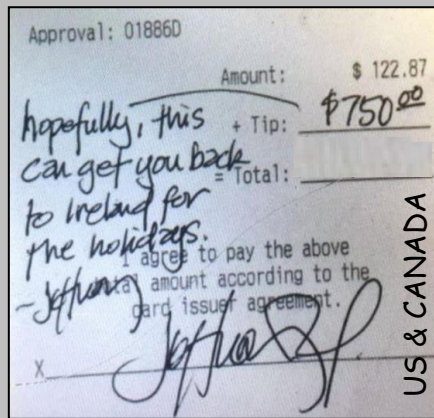 Approval: 01886D
Amount: $ 122.87
+ Tip: $750 00
= Total:
hopefully, this
can get you back
to Ireland for
the holidays.
I agree to pay the above
total amount according to the
card issuer agreement.
X
US & CANADA